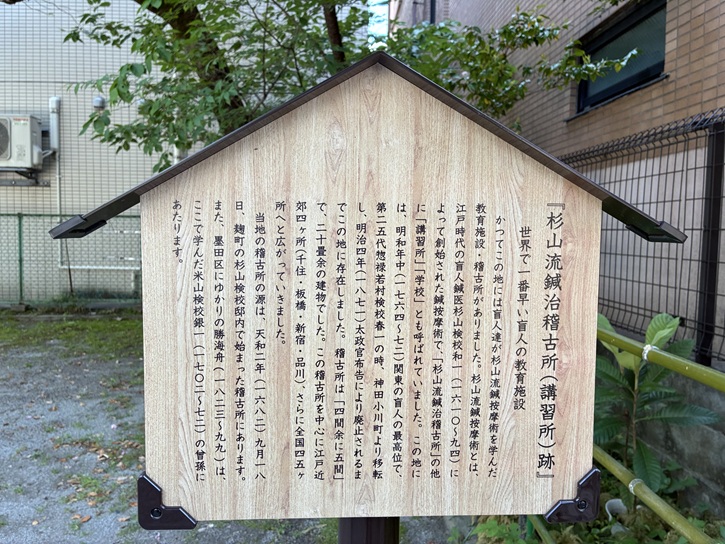 『杉山流鍼治稽古所（講習所）跡』
世界で一番早い盲人の教育施設
かつてこの地には盲人達が杉山流鍼按摩術を学んだ
教育施設・稽古所がありました。杉山流鍼按摩術とは、
江戸時代の盲人鍼医杉山検校和一（一六一〇〜九四）に
よって創始された鍼按摩術で、「杉山流鍼治稽古所」の他
に「講習所」「学校」とも呼ばれていました。この地に
は、明和年中（一七六四〜七二）関東の盲人の最高位で、
第二五代惣禄若村検校春一の時、神田小川町より移転
し、明治四年（一八七一）太政官布告により廃止されるま
でこの地に存在しました。稽古所は「四間余に五間」
で、二十畳余の建物でした。この稽古所を中心に江戸近
郊四ヶ所（千住・板橋・新宿・品川）、さらに全国四五ヶ
所へと広がっていきました。
当地の稽古所の源は、天和二年（一六八二）九月一八
日、麹町の杉山検校邸内で始まった稽古所にあります。
また、墨田区にゆかりの勝海舟（一八二三〜九九）は、
ここで学んだ米山検校銀一（一七〇二〜七二）の曾孫に
あたります。